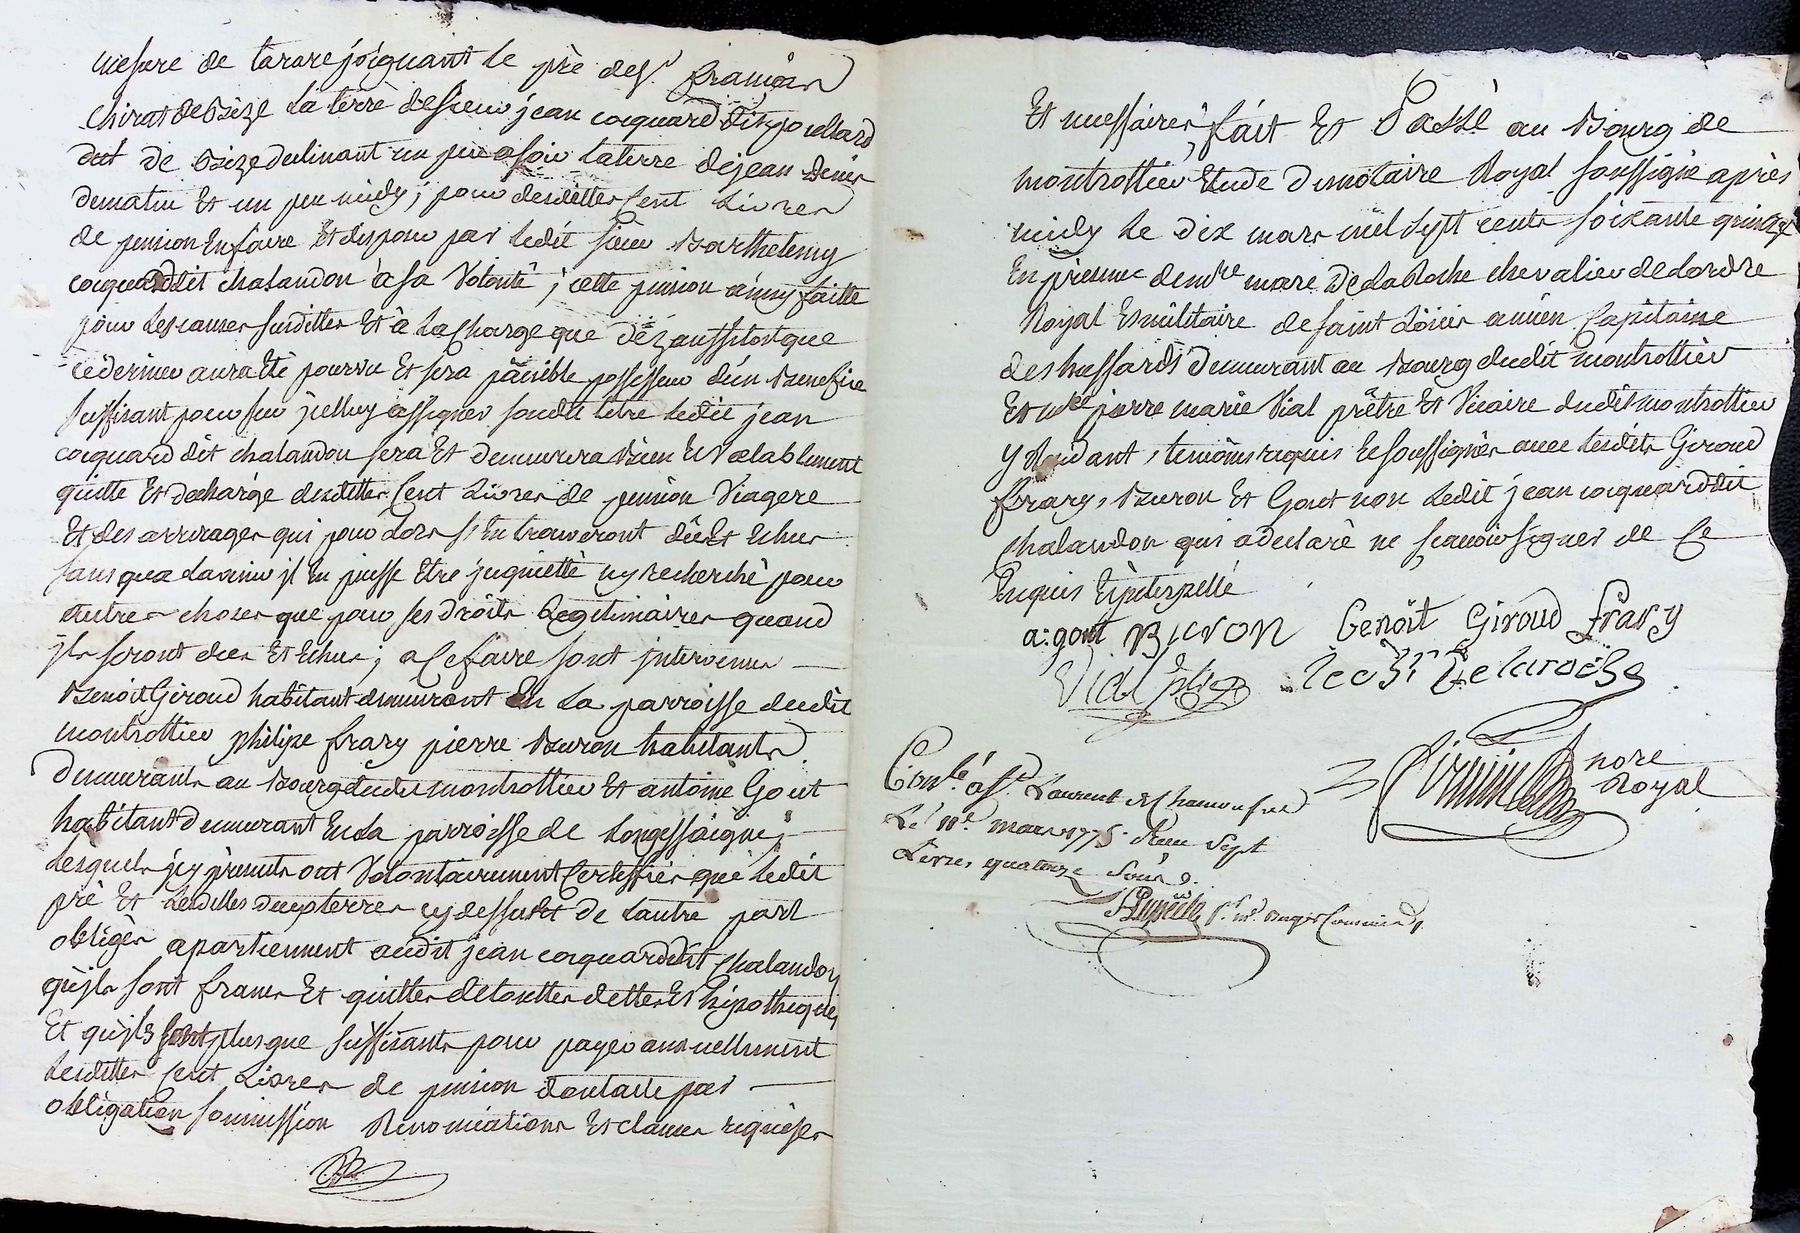 mesure de tarare joignant le prè de Sr. francois
Chirat de Bize la terre de sieur jean coquard dit
dut de Bize declinant un peu a soir la terre de jean Denis
de matin Et un peu midy; pour desdittes Cent Livres
de pension En faire Et disposer par ledit sieur Barthelemy
coquard dit chalandon à sa Volonté; cette pension ainsy faitte
pour les causes susdittes Et à la Charge que dèz aussitost que
ce dernier aura Eté pourvu Et sera paisible possesseur d'un Benefice
suffisant pour sur jcelluy assigner sondit titre ledit jean
coquard dit chalandon sera Et demeurera Bien Et Valablement
quitte Et decharge desdittes Cent Livres de pension Viagere
Et des arrerages qui pour Lors s'En trouveront dûs Et Echus
sans qu'a Lavenir jl En puisse Etre jnquietté ny recherché pour
autres choses que pour ses droits Legitimaires quand
jls seront dus Et Echus; a Ce faire sont jntervenus
Benoit Giroud habitant demeurant En La parroisse dudit
montrottier philipe frary pierre Buron habitants
Demeurants au Bourg dudit montrottier Et antoine Gout
habitant demeurant En La parroisse de Longessaigne
Lesquels jcy présents ont Volontairement Certiffiés que ledit
prè Et lesdittes deux terres cy dessus Et de l'autre part
obligés apartiennent audit jean coquard dit chalandon
qu'jls sont francs Et quittes de touttes dettes Et hipotheques
Et qu'jls sont plus que suffisants pour payer annuellement
lesdittes Cent Livres de pension dont acte par
obligation soumission Renonciations Et clauses requises
Et necessaires, fait Et Passé au Bourg de
montrottier Etude du notaire Royal soussigné après
midy le dix mars mil sept cents soixante quinze
En presence de mre marc De La Roche chevalier de Lordre
Royal Et militaire de saint Loüis ancien Capitaine
des hussards demeurant au Bourg dudit montrottier
Et mre pierre marie Vial prêtre Et Vicaire dudit montrottier
y residant, temoins requis Et soussignés avec lesdits Giroud
frary, Buron Et Gout non ledit jean coquard dit
chalandon qui a declaré ne scavoir signer de Ce
Enquis Et jnterpellé
a: gout Buron Benoît Giroud frary
Vial ptre le chr De laroche
nore
Royal
Conlé à St. Laurent de Chamousset
Le 11e mars 1775 Reçu sept
Livres quatorze sous